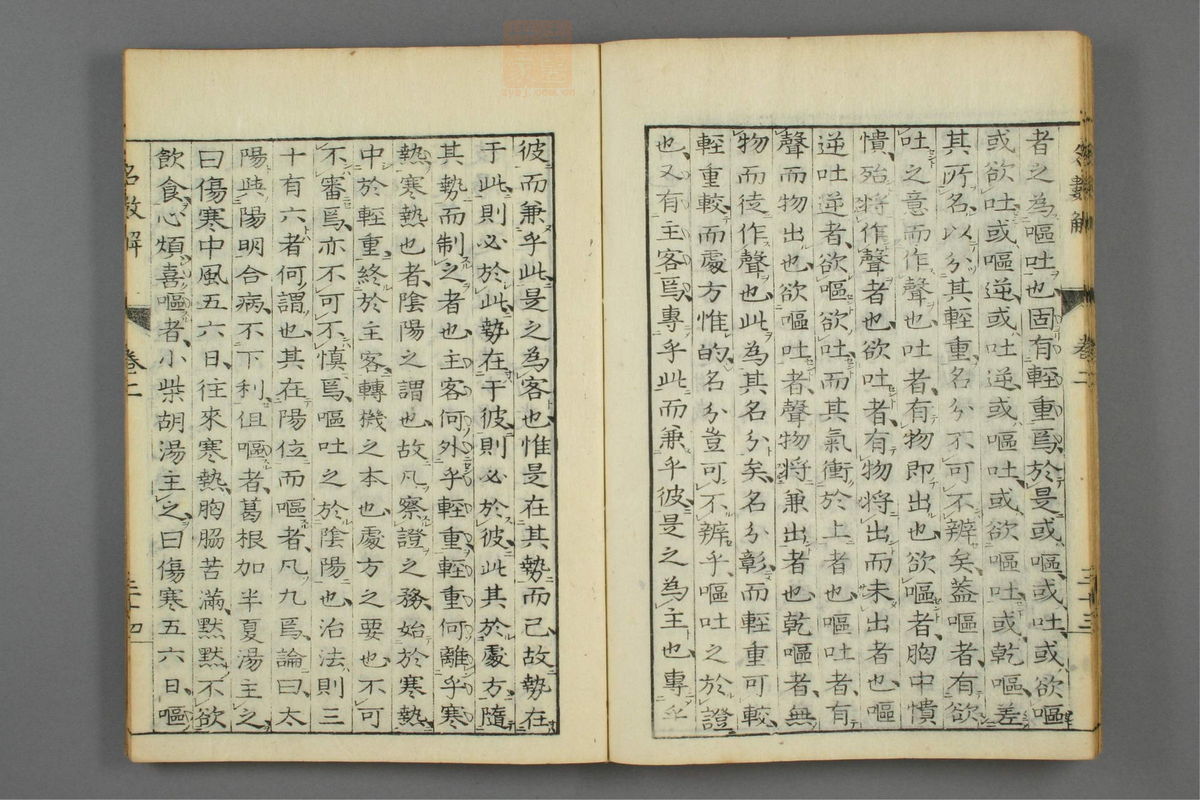 者之為嘔吐也固有輕重焉於是或嘔或吐或欲嘔
或欲吐或嘔逆或吐逆或嘔吐或欲嘔吐或乾嘔差
其所名以分其輕重名分不可不辨矣蓋嘔者有欲
吐之意而作聲也吐者有物即出也欲嘔者胸中憒
憒殆將作聲者也欲吐者有物將出而未出者也嘔
逆吐逆者欲嘔欲吐而其氣衝於上者也嘔吐者有
聲而物出也欲嘔吐者聲物將兼出者也乾嘔者無
物而徒作聲也此為其名分矣名分彰而輕重可較
輕重較而處方惟的名分豈可不辨乎嘔吐之於證
也又有主客焉專乎此而兼乎彼是之為主也專乎
名數解 卷二 三十三
彼而兼乎此是之為客也惟是在其勢而已故勢在
于此則必於此勢在于彼則必於彼此其於處方隨
其勢而制之者也主客何外乎輕重輕重何離乎寒
熱寒熱也者陰陽之謂也故凡察證之務始於寒熱
中於輕重終於主客轉機之本也處方之要也不可
不審焉亦不可不慎焉嘔吐之於陰陽也治法則三
十有六者何謂也其在陽位而嘔者凡九焉論曰太
陽與陽明合病不下利但嘔者葛根加半夏湯主之
曰傷寒中風五六日往來寒熱胸脇苦滿黙黙不欲
飲食心煩喜嘔者小柴胡湯主之曰傷寒五六日嘔
名數解 卷二 三十四